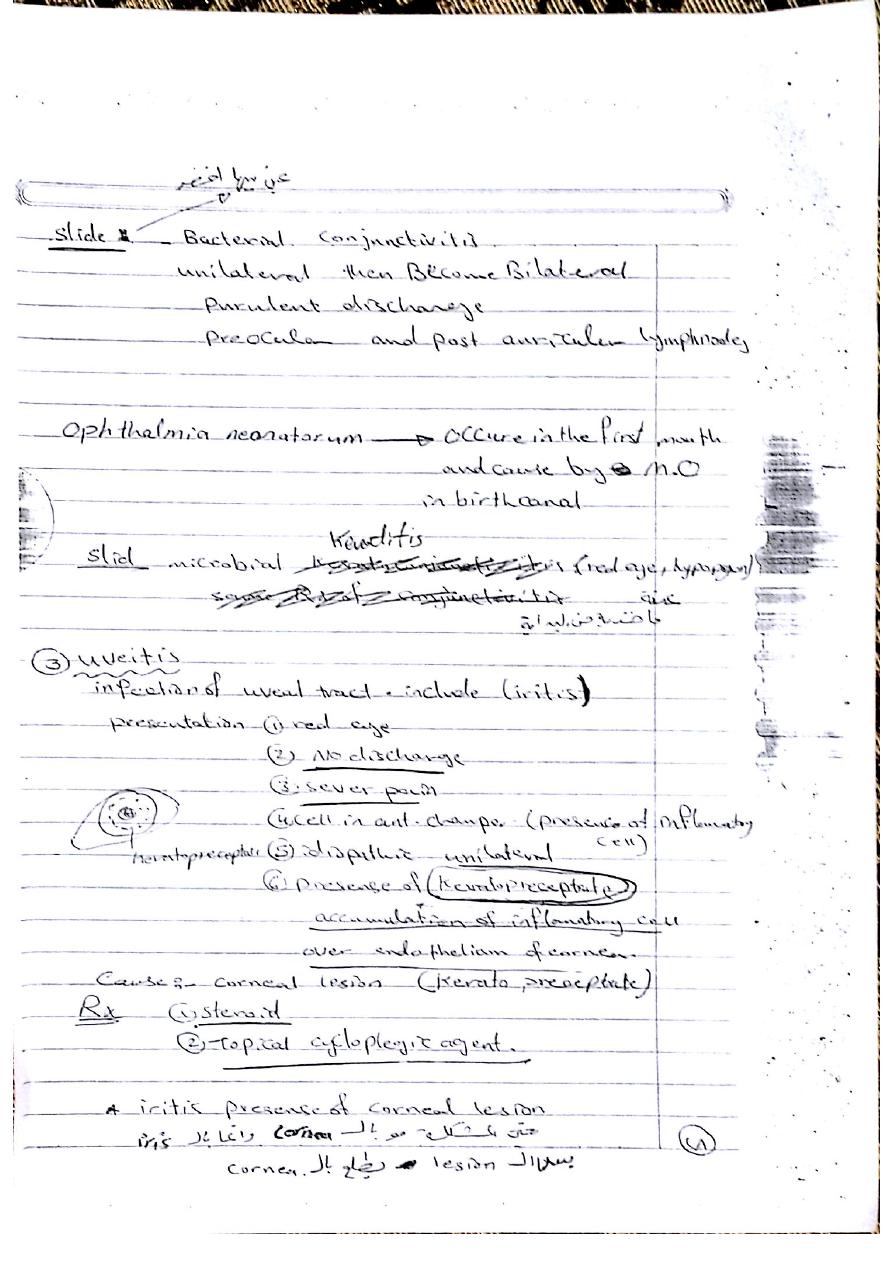 عن
slide - Bacterial. Conjunctivitis.
unilateral then Become Bilateral
purulent discharge
preocular and post auricular lymphnodes
Ophthalmia neonatorum → occure in the first month
and cause by M.O
in birth canal
Keraditis
slid microbial (red eye, hypopyon)
③ uveitis
infection of uveal tract. include (iritis)
presentation ① red eye
② No discharge
③ sever pain
④ cell in ant. champer (presence of inflammatory
cell)
keratopreceptate ⑤ idiopathic unilateral
⑥ presence of (keratopreceptate)
accumulation of inflamatory cell
over endotheliam of cornea.
Cause :- corneal lesion (kerato preceptate)
Rx ① steroid
② topical cycloplegic agent.
* iritis presence of corneal lesion
مشكلة مو بال cornea وانما بال iris
بس ال lesion يطلع بال cornea.